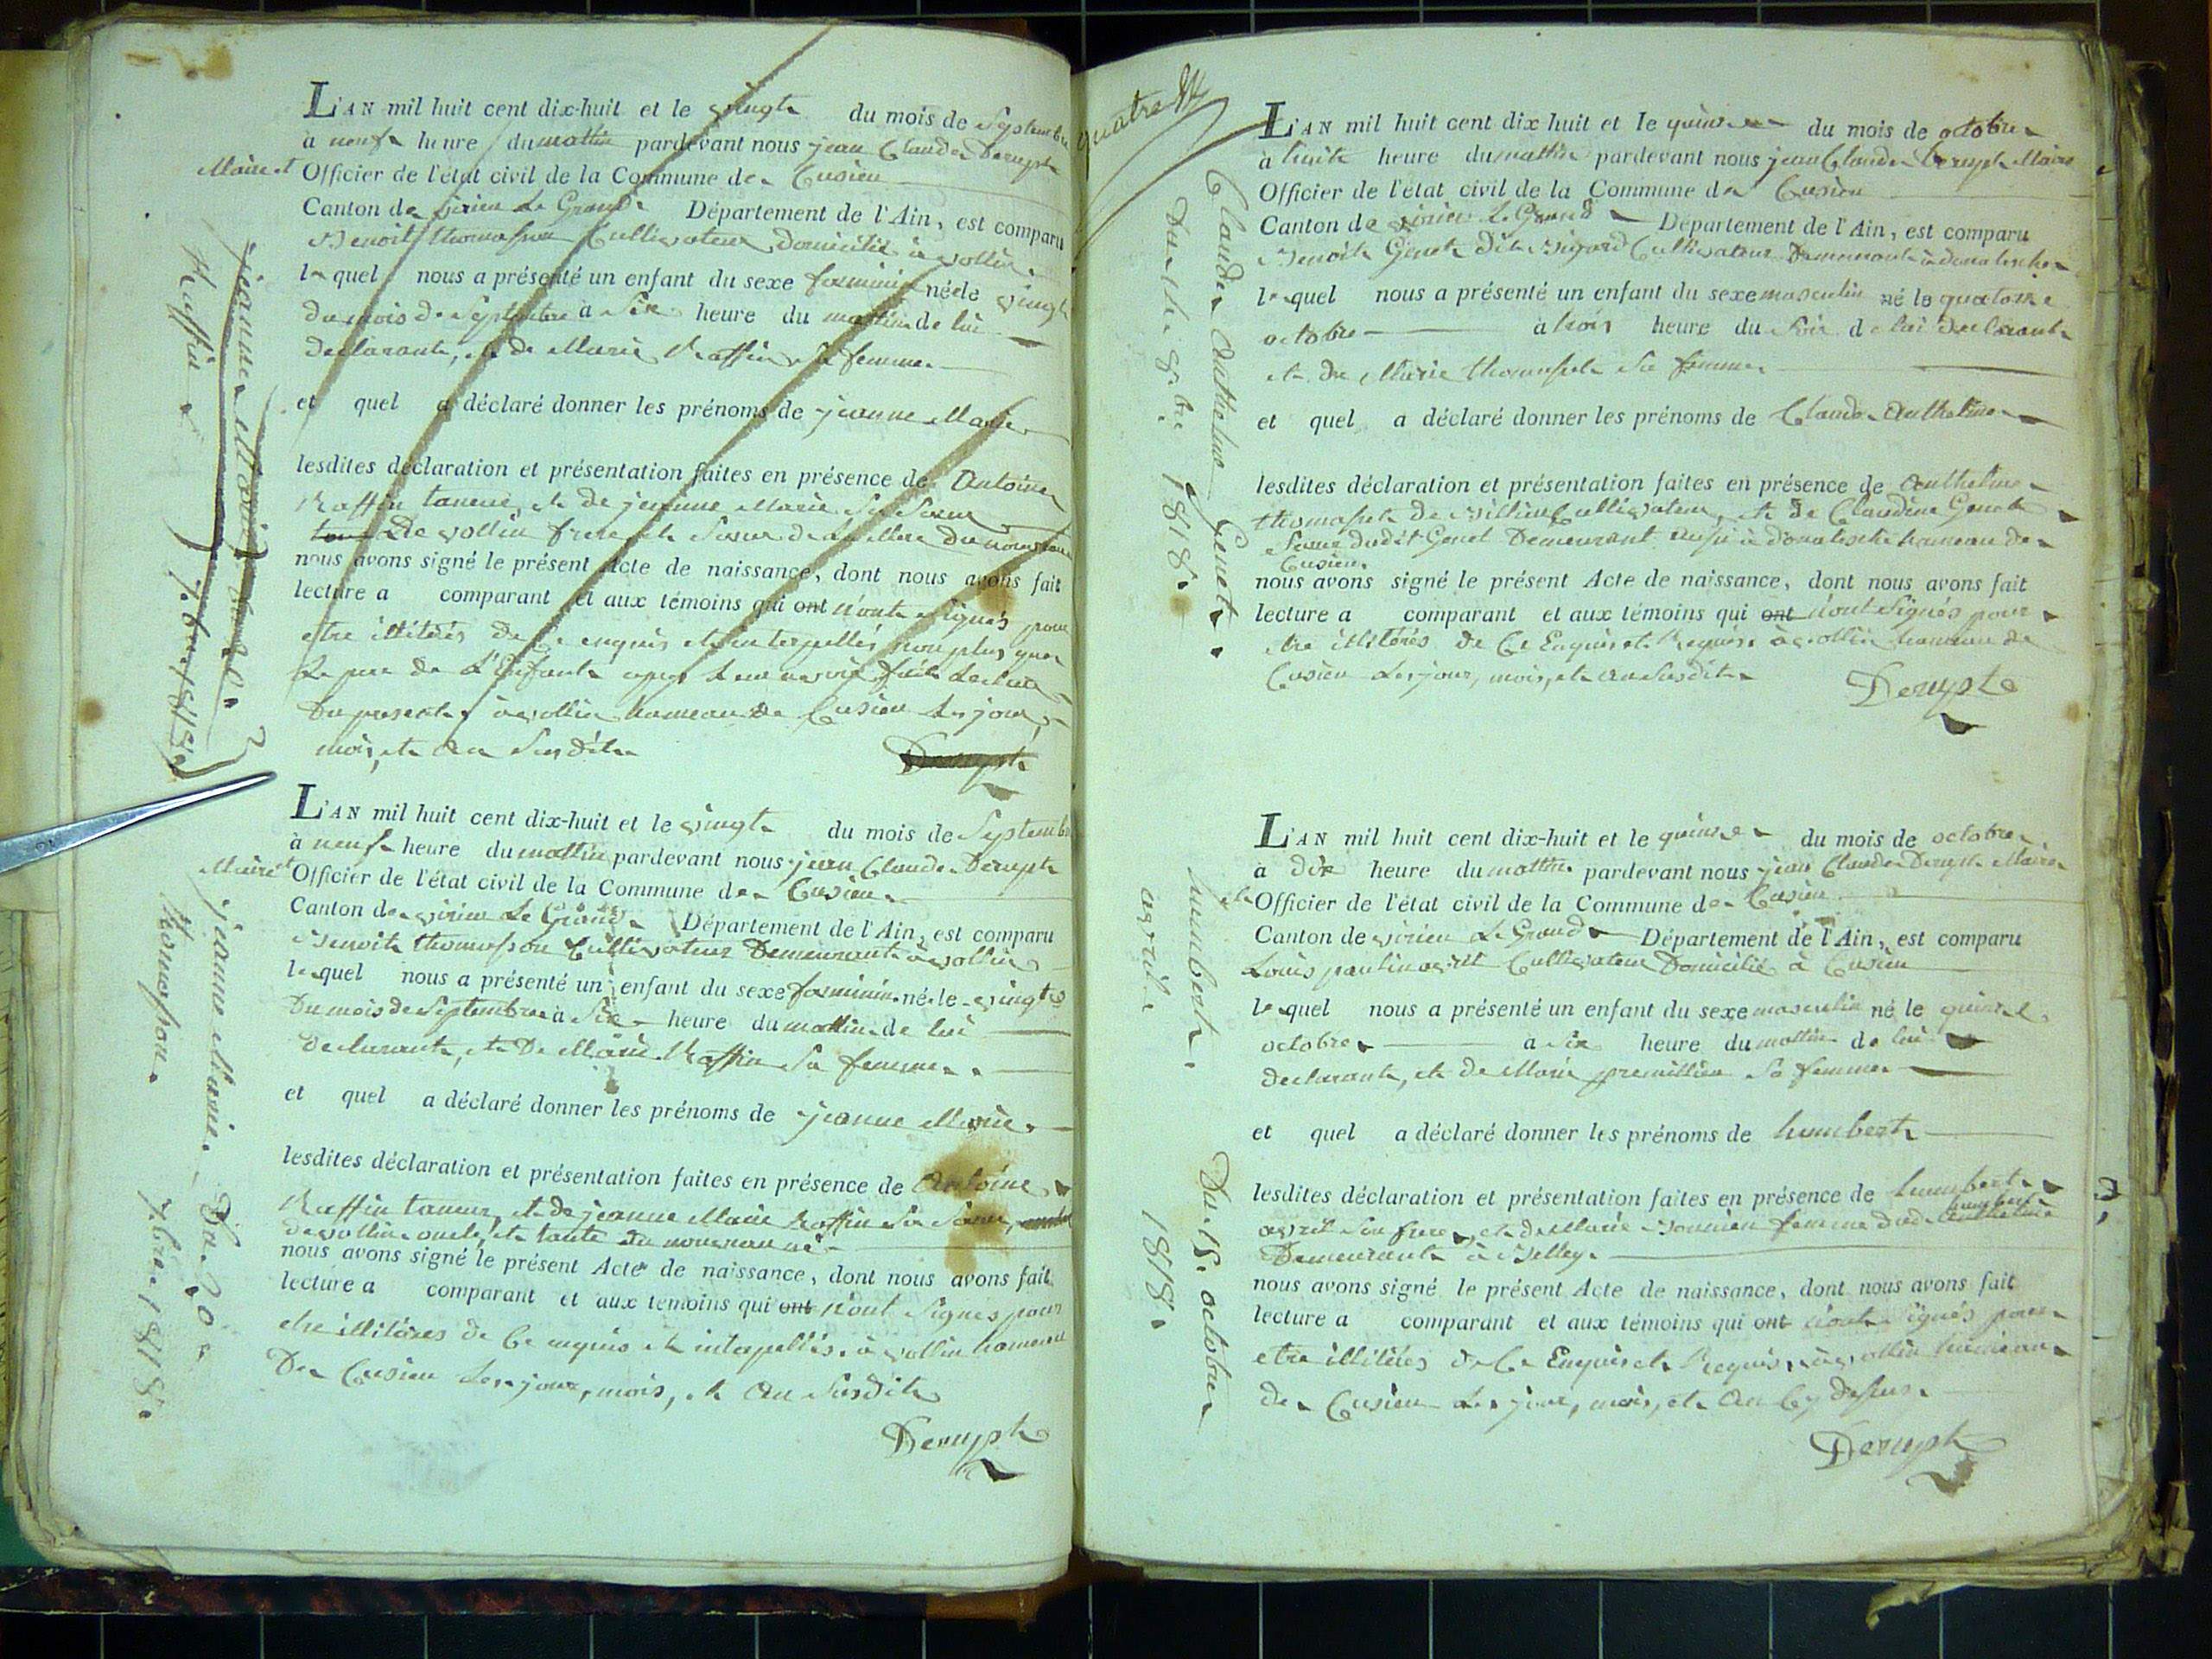 L'AN mil huit cent dix-huit et le vingt du mois de Septembre
à neuf heure du mattin pardevant nous jean Claude Derupt
Maire et Officier de l'état civil de la Commune de Cusieu
Canton de virieu Le Grand Département de l'Ain, est comparu
Benoit thomasson Cultivateur domicilié à vollin
lequel nous a présenté un enfant du sexe feminin né le vingt
du mois de Septembre à Six heure du mattin de lui
declarant, et de Marie Raffin Sa femme
et quel a déclaré donner les prénoms de jeanne Marie
lesdites déclaration et présentation faites en présence de Antoine
Raffin taneur, et de jeanne Marie Sa Soeur
de vollin frere et Soeur de la Mere du
nous avons signé le présent Acte de naissance, dont nous avons fait
lecture a comparant et aux témoins qui ont n'ont Signés pour
etre illiterés de Ce enquis et interpellés non plus que
Le pere de L'Enfant apres Leur avoir fait Lecture
Du present à vollin hameau de Cusieu Les jour,
mois, et an Susdit
Derupt
jeanne Marie
Raffin
7.bre 1818.
L'AN mil huit cent dix-huit et le vingt du mois de Septembre
à neuf heure du mattin pardevant nous jean Claude Derupt
Maire et Officier de l'état civil de la Commune de Cusieu
Canton de virieu Le Grand Département de l'Ain, est comparu
Benoit thomasson Cultivateur Demeurant à vollin
lequel nous a présenté un enfant du sexe feminin né le vingt
Du mois de Septembre à Six heure du mattin de lui
declarant, et De Marie Raffin Sa femme.
et quel a déclaré donner les prénoms de jeanne Marie.
lesdites déclaration et présentation faites en présence de Antoine
Raffin taneur, et de jeanne Marie Raffin Sa Soeur,
de vollin oncle, et tante du nouveau né
nous avons signé le présent Acte de naissance, dont nous avons fait
lecture a comparant et aux témoins qui ont n'ont Signés pour
etre illiterés de Ce enquis et interpellés. à vollin hameau
De Cusieu Les jour, mois, et an Susdit
Derupt
jeanne Marie Du 20
thomasson 7.bre 1818.
quatre
L'AN mil huit cent dix huit et le quinze du mois de octobre
à huit heure du mattin pardevant nous jean Claude Derupt Maire
Officier de l'état civil de la Commune de Cusieu
Canton de virieu Le Grand Département de l'Ain, est comparu
Benoit Genet dit Cultivateur Demeurant à
lequel nous a présenté un enfant du sexe masculin né le quatorze
octobre à trois heure du Soir de lui declarant
et de Marie thomasset Sa femme
et quel a déclaré donner les prénoms de Claude Anthelme
lesdites déclaration et présentation faites en présence de Anthelme
thomasset de Cultivateur, et de Claudine Genet
Soeur dudit Genet Demeurant aussi à hameau de
Cusieu.
nous avons signé le présent Acte de naissance, dont nous avons fait
lecture a comparant et aux témoins qui ont n'ont Signés pour
etre illiterés de Ce Enquis et Requis. à vollin hameau de
Cusieu Les jour, mois, et an Susdit
Derupt
Claude Anthelme Genet.
Du 15 8.bre 1818.
L'AN mil huit cent dix-huit et le quinze du mois de octobre
à Dix heure du mattin pardevant nous jean Claude Derupt Maire
et Officier de l'état civil de la Commune de Cusieu
Canton de virieu Le Grand Département de l'Ain, est comparu
Louis paulin avril Cultivateur Domicilié à Cusieu
lequel nous a présenté un enfant du sexe masculin né le quinze
octobre à Six heure du mattin de lui
declarant, et de Marie premillieu Sa femme
et quel a déclaré donner les prénoms de humbert
lesdites déclaration et présentation faites en présence de humbert
avril Son frere, et de Marie femme dud. humbert
Demeurant à Belley.
nous avons signé le présent Acte de naissance, dont nous avons fait
lecture a comparant et aux témoins qui ont n'ont Signés pour
etre illiterés de Ce Enquis et Requis, à vollin hameau
de Cusieu Les jour, mois, et an Cy dessus.
Derupt
humbert. Du. 15. octobre
avril 1818.